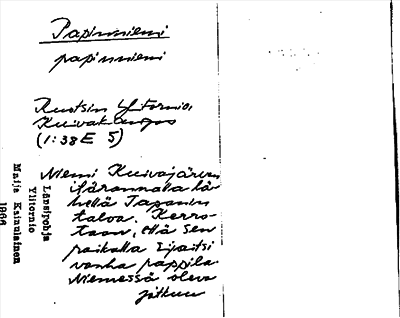 Papinniemi
papinniemi
Ruotsin Ylitornio,
Kuivakangas
(1:38 E 5)
Niemi Kuivajärven
itärannalla lä-
hellä Tapanin
taloa. Kerro-
taan, että sen
paikalla sijaitsi
vanha pappila.
Niemessä oleva
jatkuu
Länsipohja
Ylitornio
Maija Kainulainen
1966